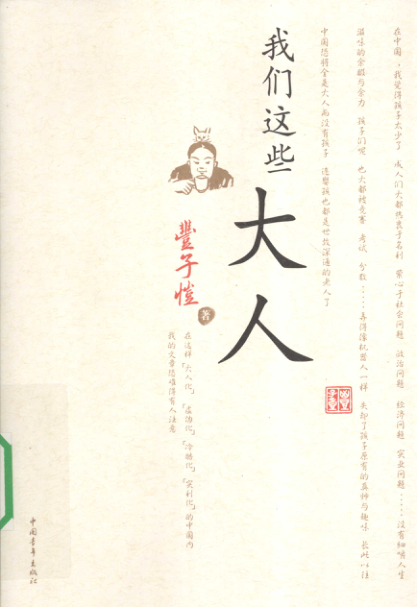 在中国，我觉得孩子太少了 成人们大都热衷于名利 萦心于社会问题 政治问题 经济问题 实业问题……没有细嚼人生
滋味的余暇与余力 孩子们呢 也大都被竞赛 考试 分数……弄得像机器人一样 失却了孩子原有的真率与趣味 长此以往
中国恐将全是大人而没有孩子 连婴孩也都是世故深通的老人了
我们这些
大人
豐子愷
著
在这样「大人化」「虚伪化」「冷酷化」「实利化」的中国内
我的文章恐难得有人注意
中国青年出版社